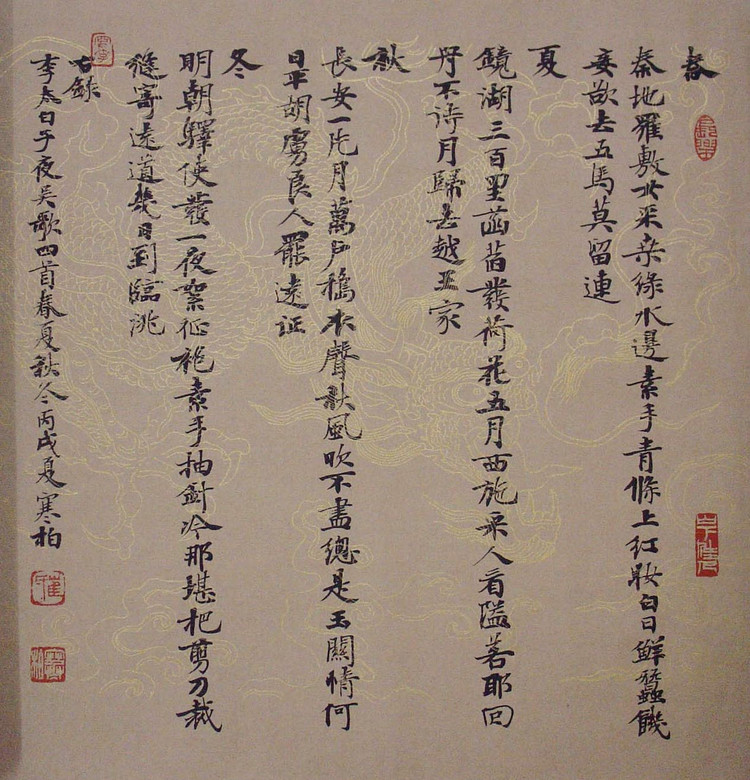 春
秦地羅敷女采桑綠水邊素手青條上紅妝白日鮮蠶饑
妾欲去五馬莫留連
夏
鏡湖三百里菡萏發荷花五月西施采人看隘若耶回
舟不待月歸去越王家
秋
長安一片月萬戶擣衣聲秋風吹不盡總是玉關情何
日平胡虜良人罷遠征
冬
明朝驛使發一夜絮征袍素手抽針冷那堪把剪刀裁
縫寄遠道幾日到臨洮
右錄
李太白子夜吳歌四首春夏秋冬丙戌夏寒柏